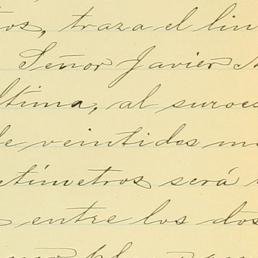 os, traza el lin
Señor Javier
ltima, al suroes
e veintidos me
tímetros será
entre los dos